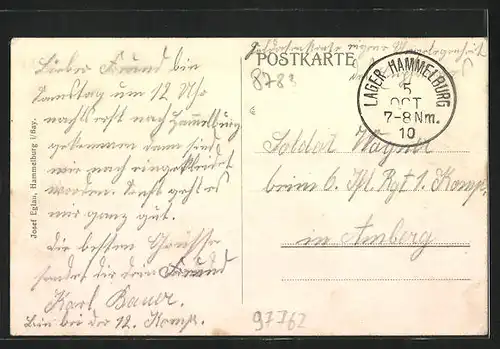 Lieber Freund bin
Samstag um 12 Uhr
nachts erst nach Hammelburg
gekommen dann sind
wir noch eingekleidet
worden. Sonst geht es
mir ganz gut.
Die besten Grüsse
sendet dir dein Freund
Karl Bauer.
Bin bei der 12. Komp.
Josef Eglau, Hammelburg i/Bay.
POSTKARTE
8783
LAGER HAMMELBURG
5
OCT
7-8 Nm.
10
Soldat Wagner
beim 6. Jf. Rgt 1. Komp.
in Amberg
97762